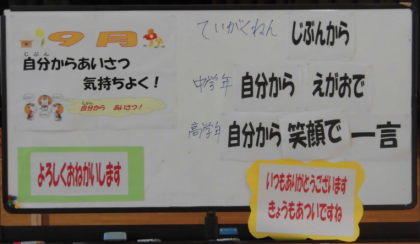 9月
じぶん
自分からあいさつ
気持ちよく!
自分から あいさつ!
よろしくおねがいします
ていがくねん じぶんから
中学年 自分から えがおで
高学年 自分から 笑顔で 一言
いつもありがとうございます
きょうもあついですね